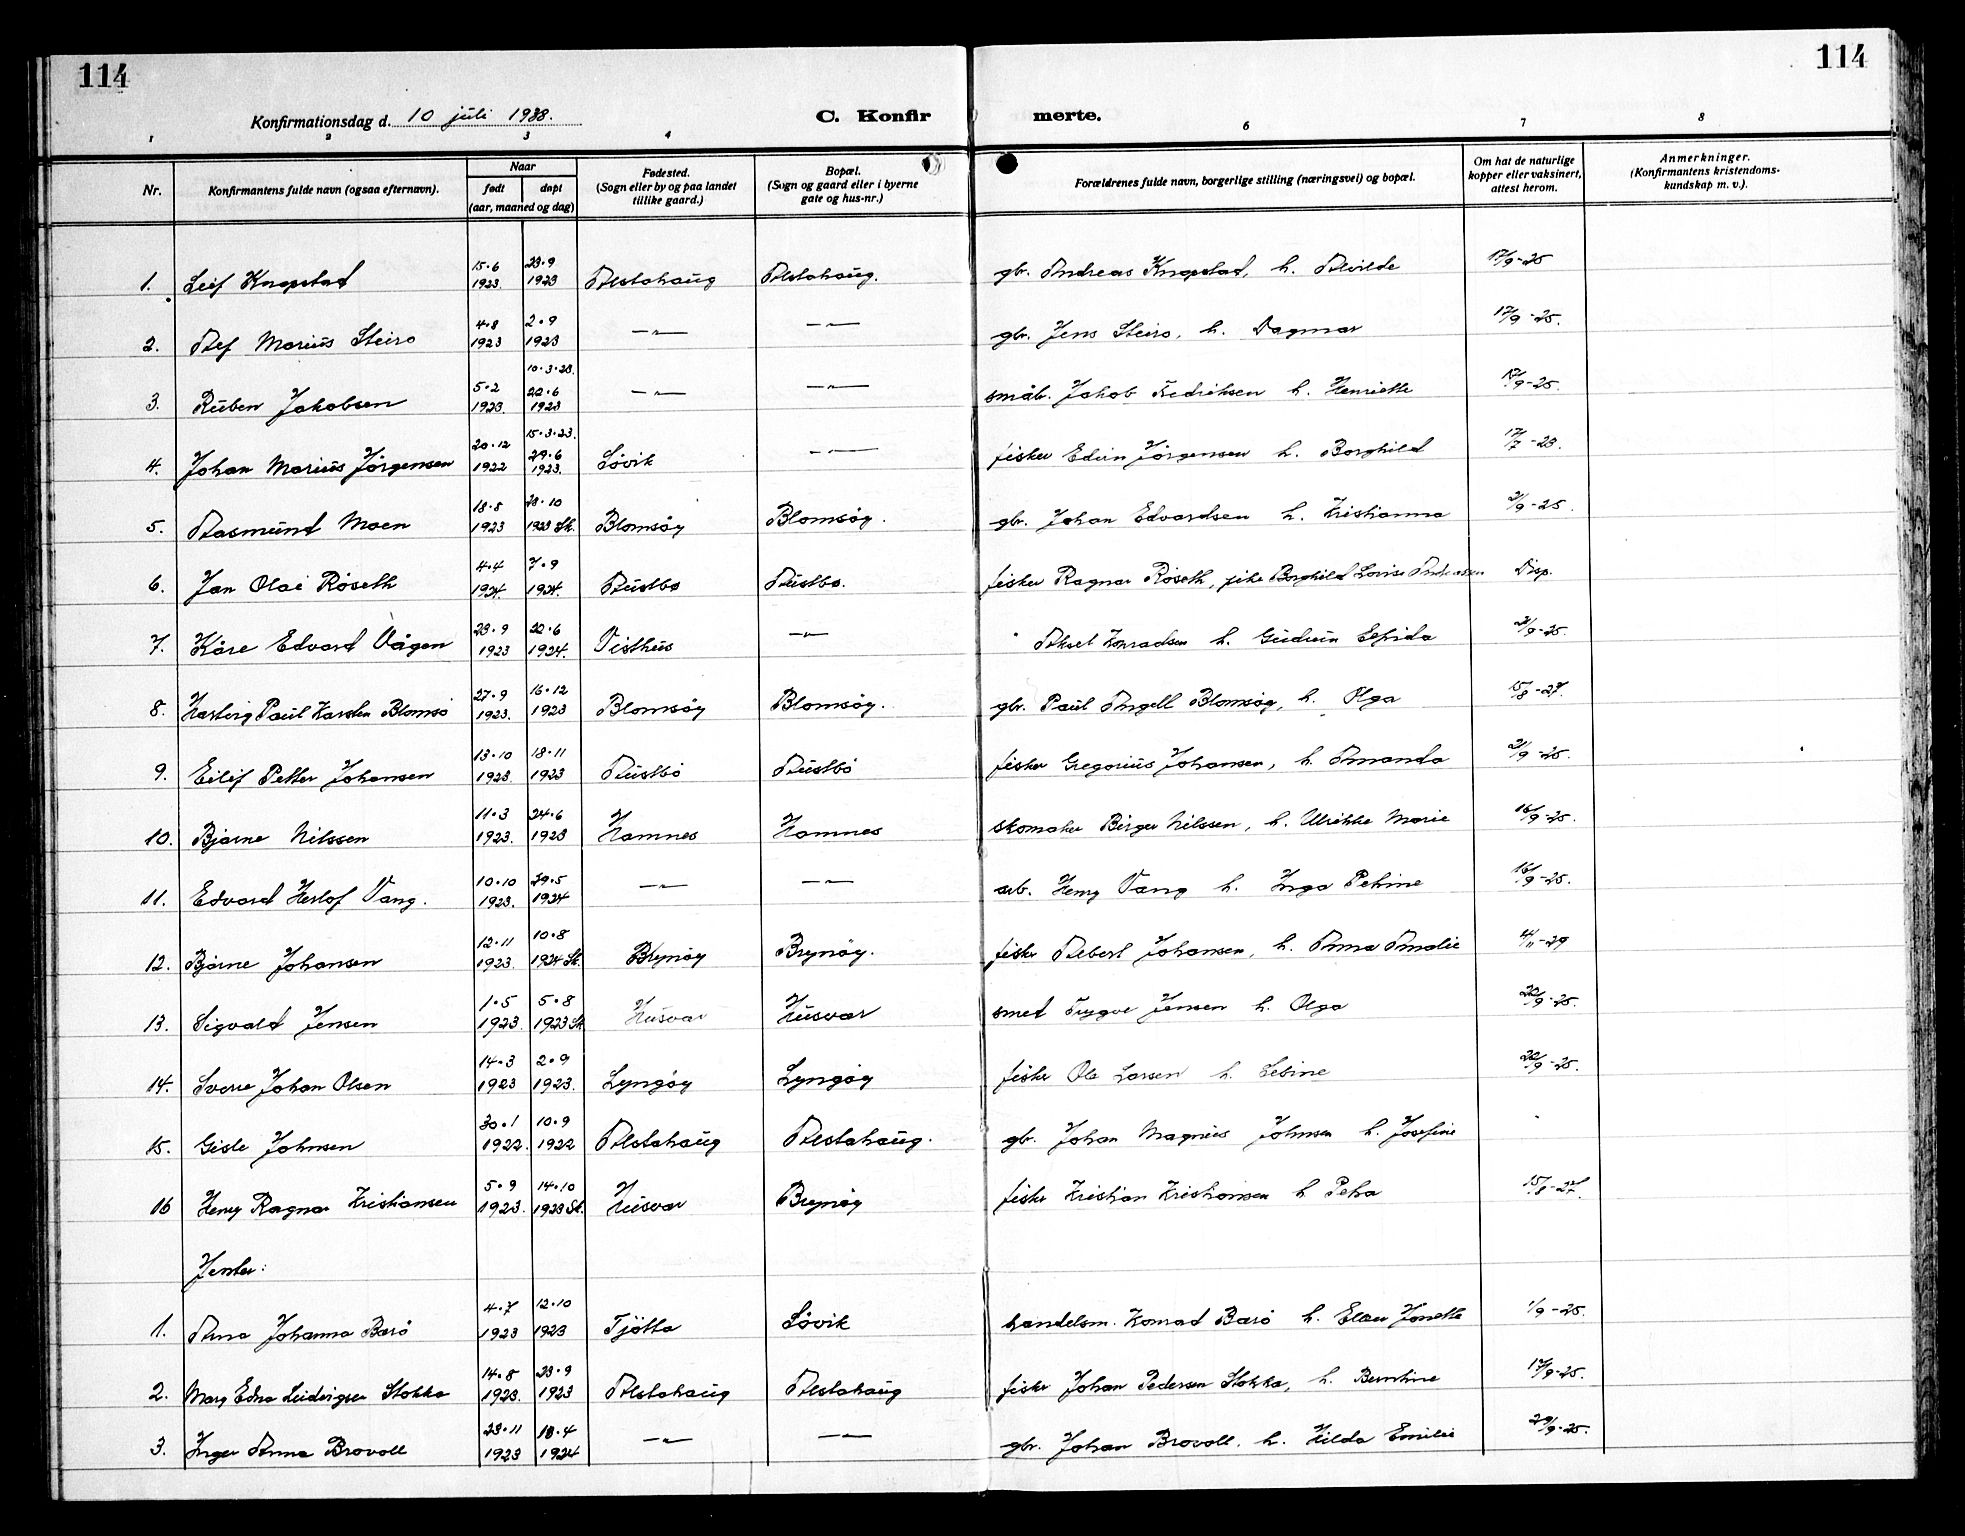 114
114
Konfirmationsdag d. 10 juli 1938.
C. Konfir
merte.
1 2 3 4 6 7 8
Nr.
Konfirmantens fulde navn (ogsaa efternavn).
Naar
født døpt
(aar, maaned og dag)
Fødested.
(Sogn eller by og paa landet
tillike gaard.)
Bopæl.
(Sogn og gaard eller i byerne
gate og hus-nr.)
Forældrenes fulde navn, borgerlige stilling (næringsvei) og bopæl.
Om hat de naturlige
kopper eller vaksinert,
attest herom.
Anmerkninger.
(Konfirmantens kristendoms-
kundskap m. v.).
1. Leif Knapstad 15.6 1923. 23.9 1923 Alstahaug Alstahaug. gbr. Andreas Knapstad, h. Alvilde 17/9-25
2. Alf Marius Steiro 4.8 1923 2.9 1923 —"— —"— gbr. Jens Steiro, h. Dagmar 17/9-25.
3. Ruben Jakobsen 5.2 1923. 10.3.23. 22.6 1923 —"— —"— småbr. Jakob Fredriksen h. Henriette 17/9-25.
4. Johan Marius Jörgensen 20.12 1922 15.3.23. 29.6 1923. Sövik —"— fisker Edvin Jörgensen h. Borghild 17/7-23.
5. Aasmund Moen 18.8 1923 28.10 1923 St. Blomsöy Blomsöy. gbr. Johan Edvardsen h. Kristianna 2/9-25.
6. Jan Olai Röseth 4.4 1924. 7.9 1924. Austbö Austbö. fisker Ragnar Röseth, pike Borghild Lovise Andreassen Disp.
7. Kåre Edvard Vågen 23.9 1923 22.6 1924. Visthus —"— " Aksel Konradsen h. Gudrun Elfrida 2/9-25.
8. Hartvig Paul Karsten Blomsö 27.9 1923. 16.12 1923 Blomsöy Blomsöy. gbr. Paul Angell Blomsöy, h. Olga 15/8-27.
9. Eilif Petter Johansen 13.10 1923. 18.11 1923 Austbö Austbö fisker Gregorius Johansen, h. Amanda 2/9-25.
10. Bjarne Nilssen 11.3 1923. 24.6 1923 Hamnes Hamnes skomaker Birger Nilssen, h. Ulrikke Marie 16/9-25.
11. Edvard Herlof Vang. 10.10 1923. 29.5 1924 —"— —"— arb. Henry Vang h. Inga Petrine 16/9-25.
12. Bjarne Johansen 12.11 1923. 10.8 1924 St. Brynöy Brynöy. fisker Albert Johansen, h. Anna Amalie 4/11-29
13. Sigvald Jensen 1.5 1923. 5.8 1923 St. Husvær Husvær smed Trygve Jensen h. Olga 22/9-25.
14. Sverre Johan Olsen 14.3 1923 2.9 1923. Lyngöy Lyngöy fisker Ole Larsen h. Sebine 22/9-25.
15. Gisle Johnsen 30.1 1922. 10.9 1922 Alstahaug Alstahaug. gbr. Johan Magnus Johnsen h. Josefine "
16 Henry Ragnar Kristiansen 5.9 1923. 14.10 1923 St. Husvær Brynöy fisker Kristian Kristiansen h Petra 15/8-27.
Jenter:
1. Anna Johanna Barö 4.7 1923 12.10 1923 Tjötta Sövik handelsm. Konrad Barö h. Elen Jonette 1/9-25.
2. Mary Edna Ludvigsen Stokka 14.8 1923. 23.9 1923 Alstahaug Alstahaug fisker Johan Pedersen Stokka, h. Berntine 17/9-25.
3. Inger Anna Brovoll 23.11 1923 18.4 1924 —"— —"— gbr. Johan Brovoll, h. Hilda Emilie 29/9-25.